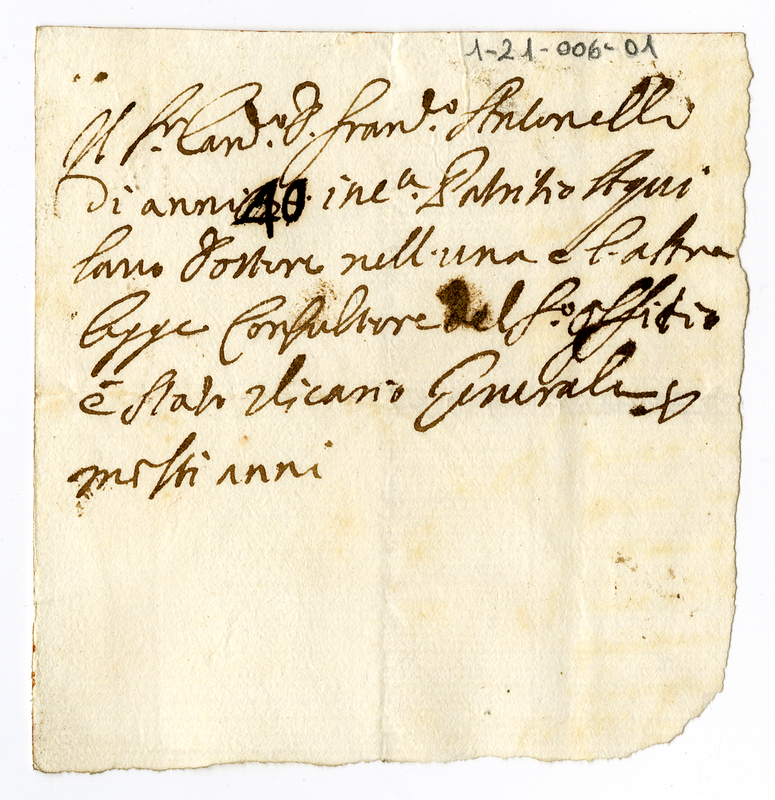 1-21-006-01
Il Sr. Cand.o D. Fran.o Antonelli
di anni 40. in c.a Patritio Aqui
lano Dottore nell'una e l'altra
legge Consultore del S.o Offitio
è stato Vicario Generale p
molti anni